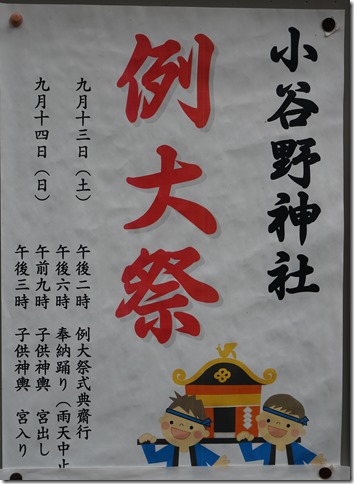 小谷野神社
例大祭
九月十三日（土）　午後二時　例大祭式典齋行
午後六時　奉納踊り（雨天中止
九月十四日（日）　午前九時　子供神輿　宮出し
午後三時　子供神輿　宮入り